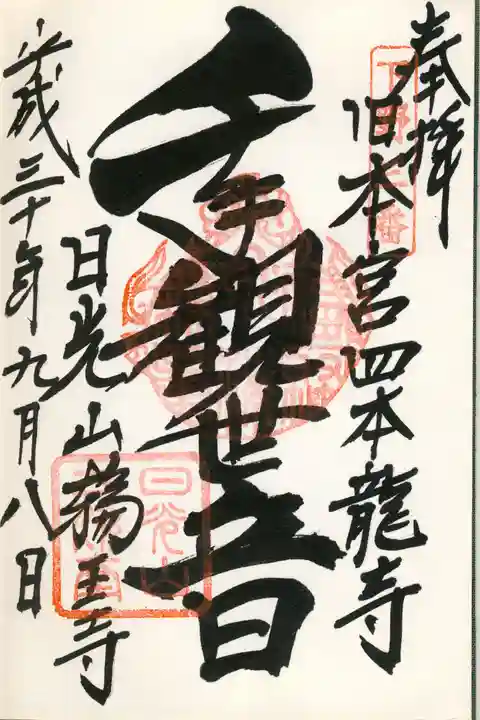 奉拝
旧本宮四本龍寺
千手観世音
日光山輪王寺
平成三十年九月八日
下野三番
日光山